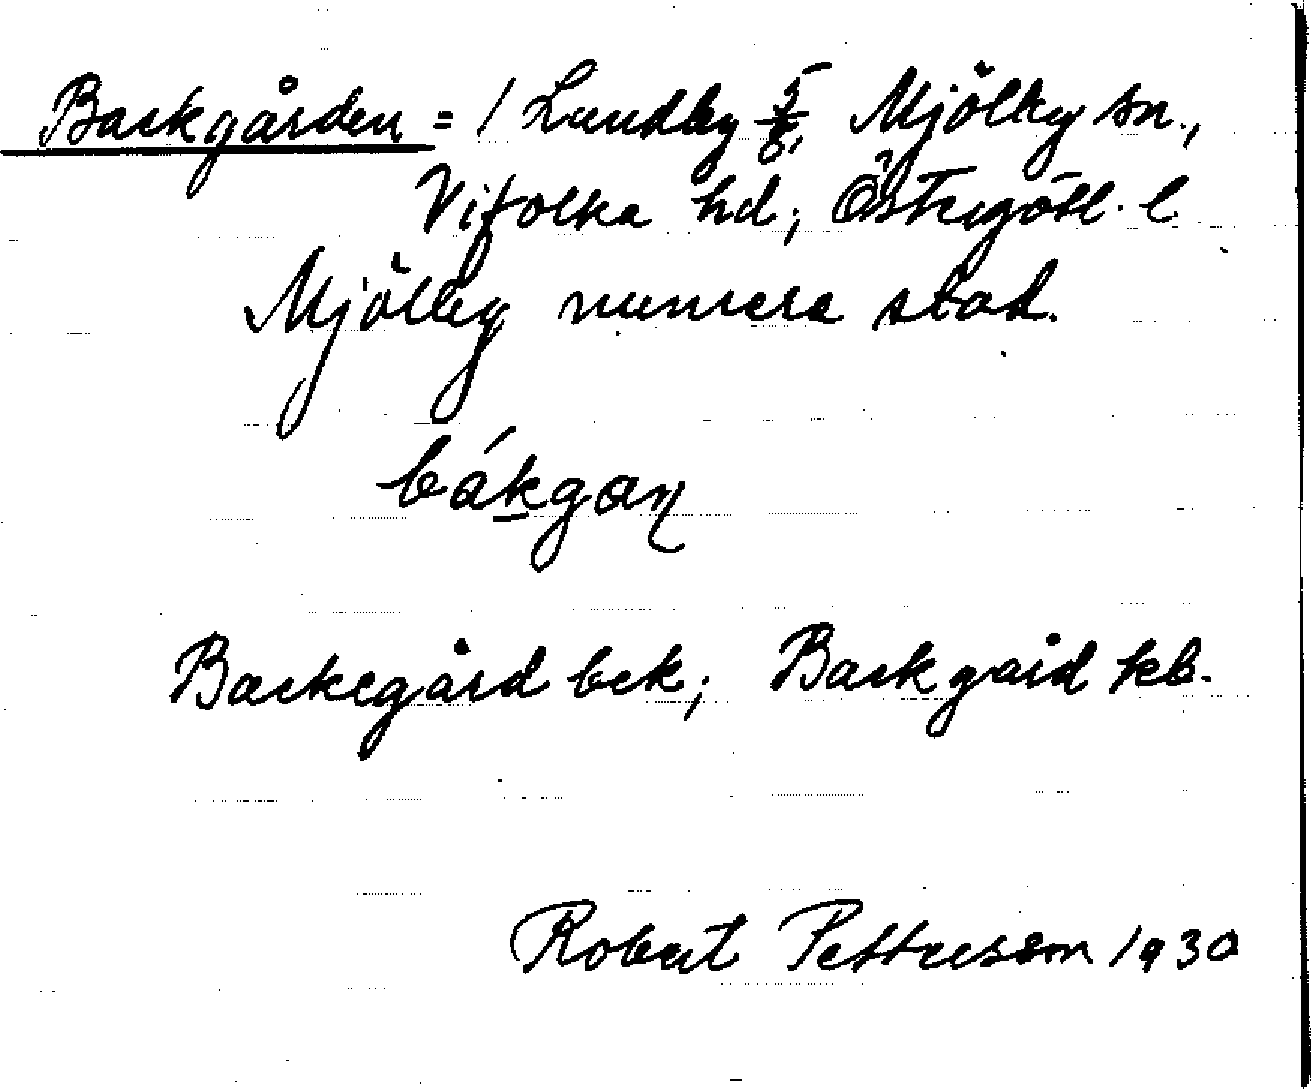 Backgården = 1 Lundby 5/6, Mjölby sn.,
Vifolka hd; Östergötl. l
Mjölby numera stad.
bákgaɳ
Backegård bck; Backgård kb.
Robert Pettersson 1930